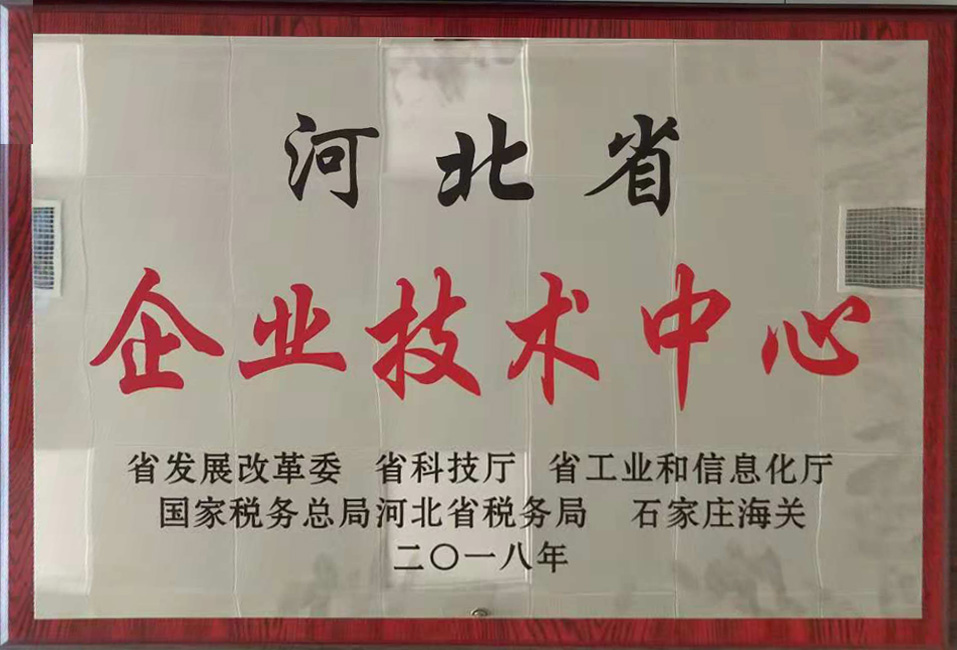 河北省
企业技术中心
省发展改革委 省科技厅 省工业和信息化厅
国家税务总局河北省税务局 石家庄海关
二〇一八年